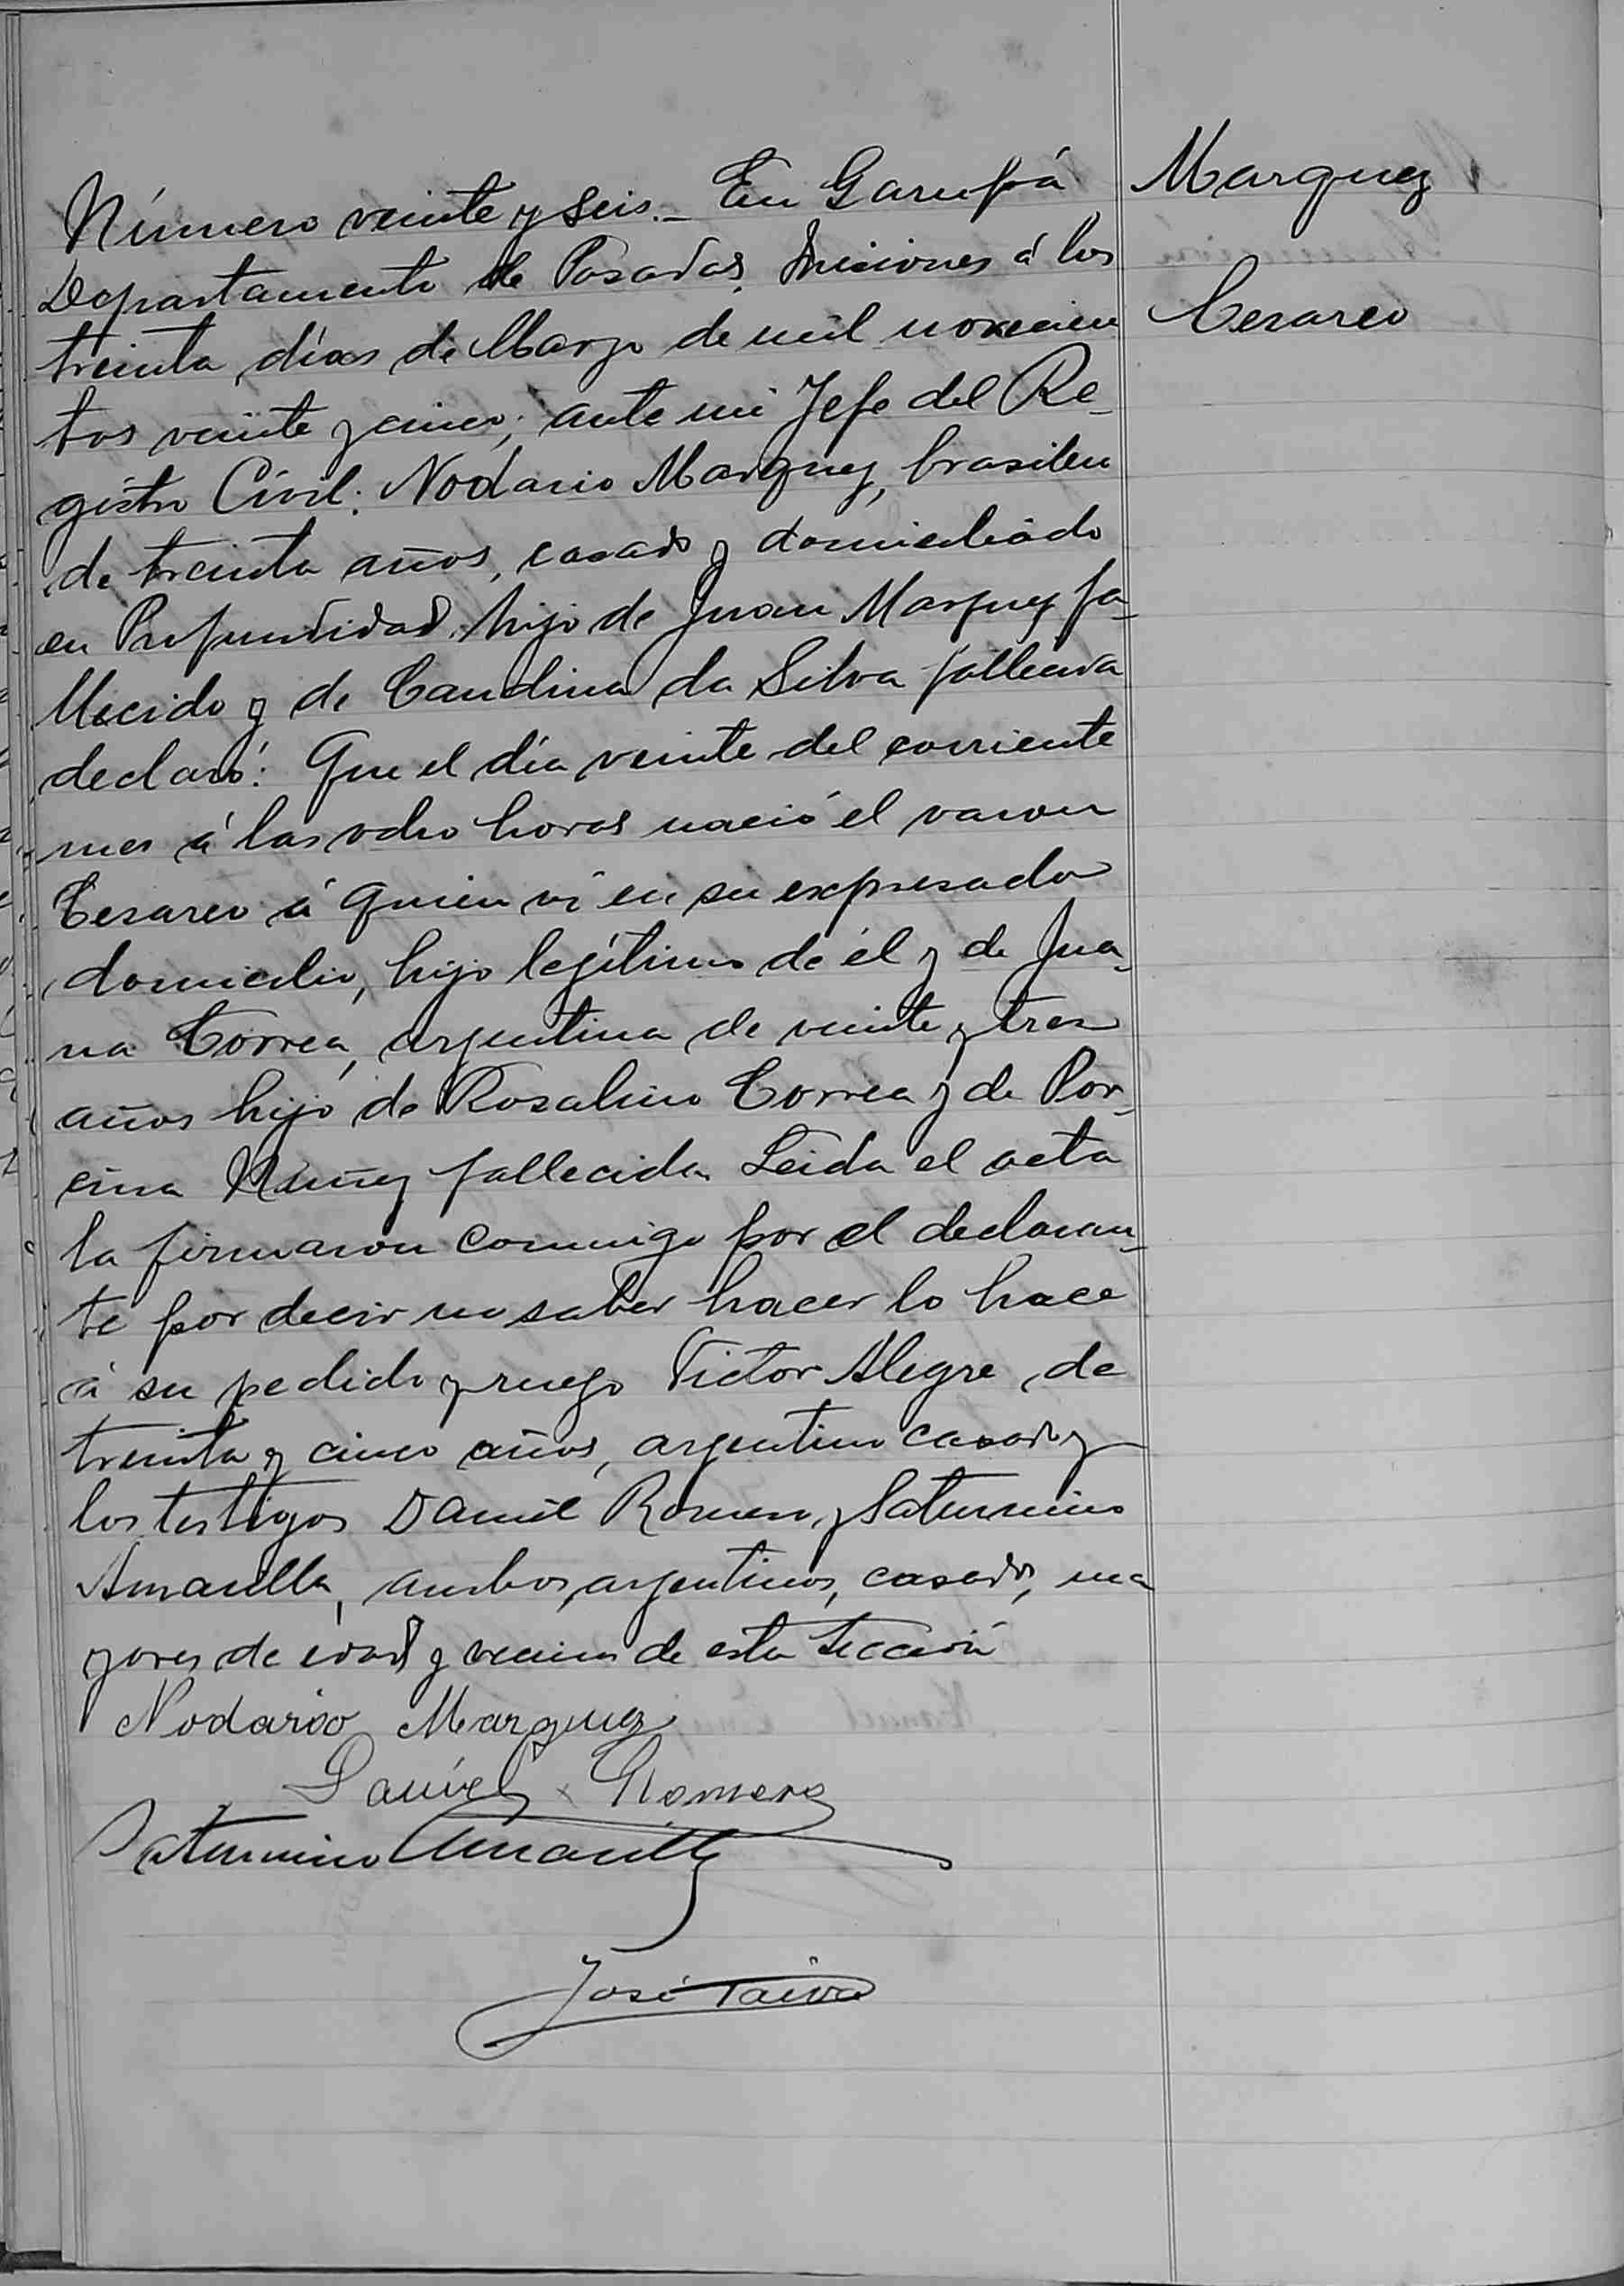 Número veinte y seis._ En Garupá
Departamento de Posadas, Misiones á los
treinta días de Marzo de mil novecien
tos veinte y cinco; ante mi Jefe del Re_
gistro Civil. Nodario Marquez, brasilen
de treinta años, casado y domiciliado
en Profundidad, hijo de Juan Marquez fa_
llecido y de Candina da Silva fallecida
declaró: Que el día veinte del corriente
mes á las ocho horas nació el varon
Cesareo á quien vi en su expresado
domicilio, hijo legítimo de él y de Jua_
na Correa, argentina de veinte y tres
años hijo de Rosalino Correa y de Por_
cina Nuñez fallecida Leida el acta
la firmaron conmigo por el declaran_
te por decir no saber hacer lo hace
á su pedido y ruego Victor Alegre, de
treinta y cinco años, argentino casado y
los testigos Daniel Romero y Saturnino
Amarilla, ambos, argentinos, casados, ma
yores de edad y vecinos de esta sección
Nodario Marquez
Daniel Romero
Saturnino Amarilla
José Paiva
Marquez
Cesareo